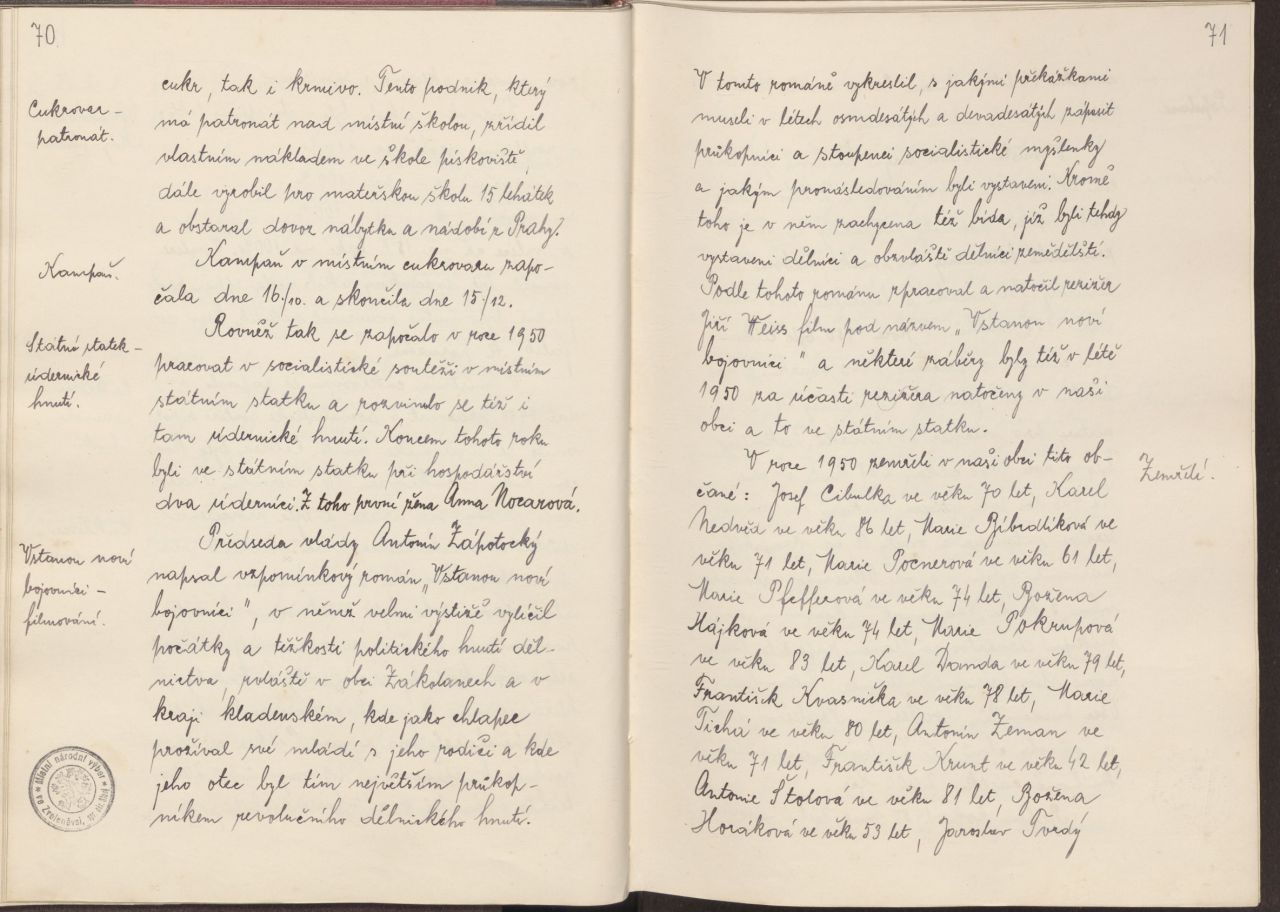 70
Cukrovar –
patronát.
cukr, tak i krmivo. Tento podnik, který
má patronát nad místní školou, zřídil
vlastním nákladem ve škole pískoviště,
dále vyrobil pro mateřskou školu 15 lehátek
a obstaral dovoz nábytku a nádobí z Prahy.
Kampaň.
Kampaň v místním cukrovaru zapo-
čala dne 16./10. a skončila dne 15./12.
Státní statek –
údernické
hnutí.
Rovněž tak se započalo v roce 1950
pracovat v socialistické soutěži v místním
státním statku a rozvinulo se též i
tam údernické hnutí. Koncem tohoto roku
byli ve státním statku při hospodářství
dva úderníci. Z toho první žena Anna Nocarová.
Vstanou noví
bojovníci –
filmování.
Předseda vlády Antonín Zápotocký
napsal vzpomínkový román „Vstanou noví
bojovníci", v němž velmi výstižě vylíčil
počátky a těžkosti politického hnutí děl-
nictva, zvláště v obci Zákolanech a v
kraji kladenském, kde jako chlapec
prožíval své mládí s jeho rodiči a kde
jeho otec byl tím největším průkop-
níkem revolučního dělnického hnutí.
Místní národní výbor
71
V tomto románě vykreslil, s jakými překážkami
museli v létech osmdesátých a devadesátých zápasit
průkopníci a stoupenci socialistické myšlenky
a jakým pronásledováním byli vystaveni. Kromě
toho je v něm zachycena též bída, jíž byli tehdy
vystaveni dělníci a obzvláště dělníci zemědělští.
Podle tohoto románu zpracoval a natočil režisér
Jiří Weiss film pod názvem „Vstanou noví
bojovníci" a některé záběry byly též v létě
1950 za účasti režiséra natočeny v naší
obci a to ve státním statku.
Zemřelí.
V roce 1950 zemřeli v naší obci tito ob-
čané: Josef Cibulka ve věku 70 let, Karel
Nedvěd ve věku 86 let, Marie Bibrdlíková ve
věku 71 let, Marie Pocnerová ve věku 61 let,
Marie Pfefferová ve věku 74 let, Božena
Hájková ve věku 74 let, Marie Pokrupová
ve věku 83 let, Karel Danda ve věku 79 let,
František Kvasnička ve věku 78 let, Marie
Tichá ve věku 80 let, Antonín Zeman ve
věku 71 let, František Krunt ve věku 42 let,
Antonie Štolová ve věku 81 let, Božena
Horáková ve věku 53 let, Jaroslav Tvrdý